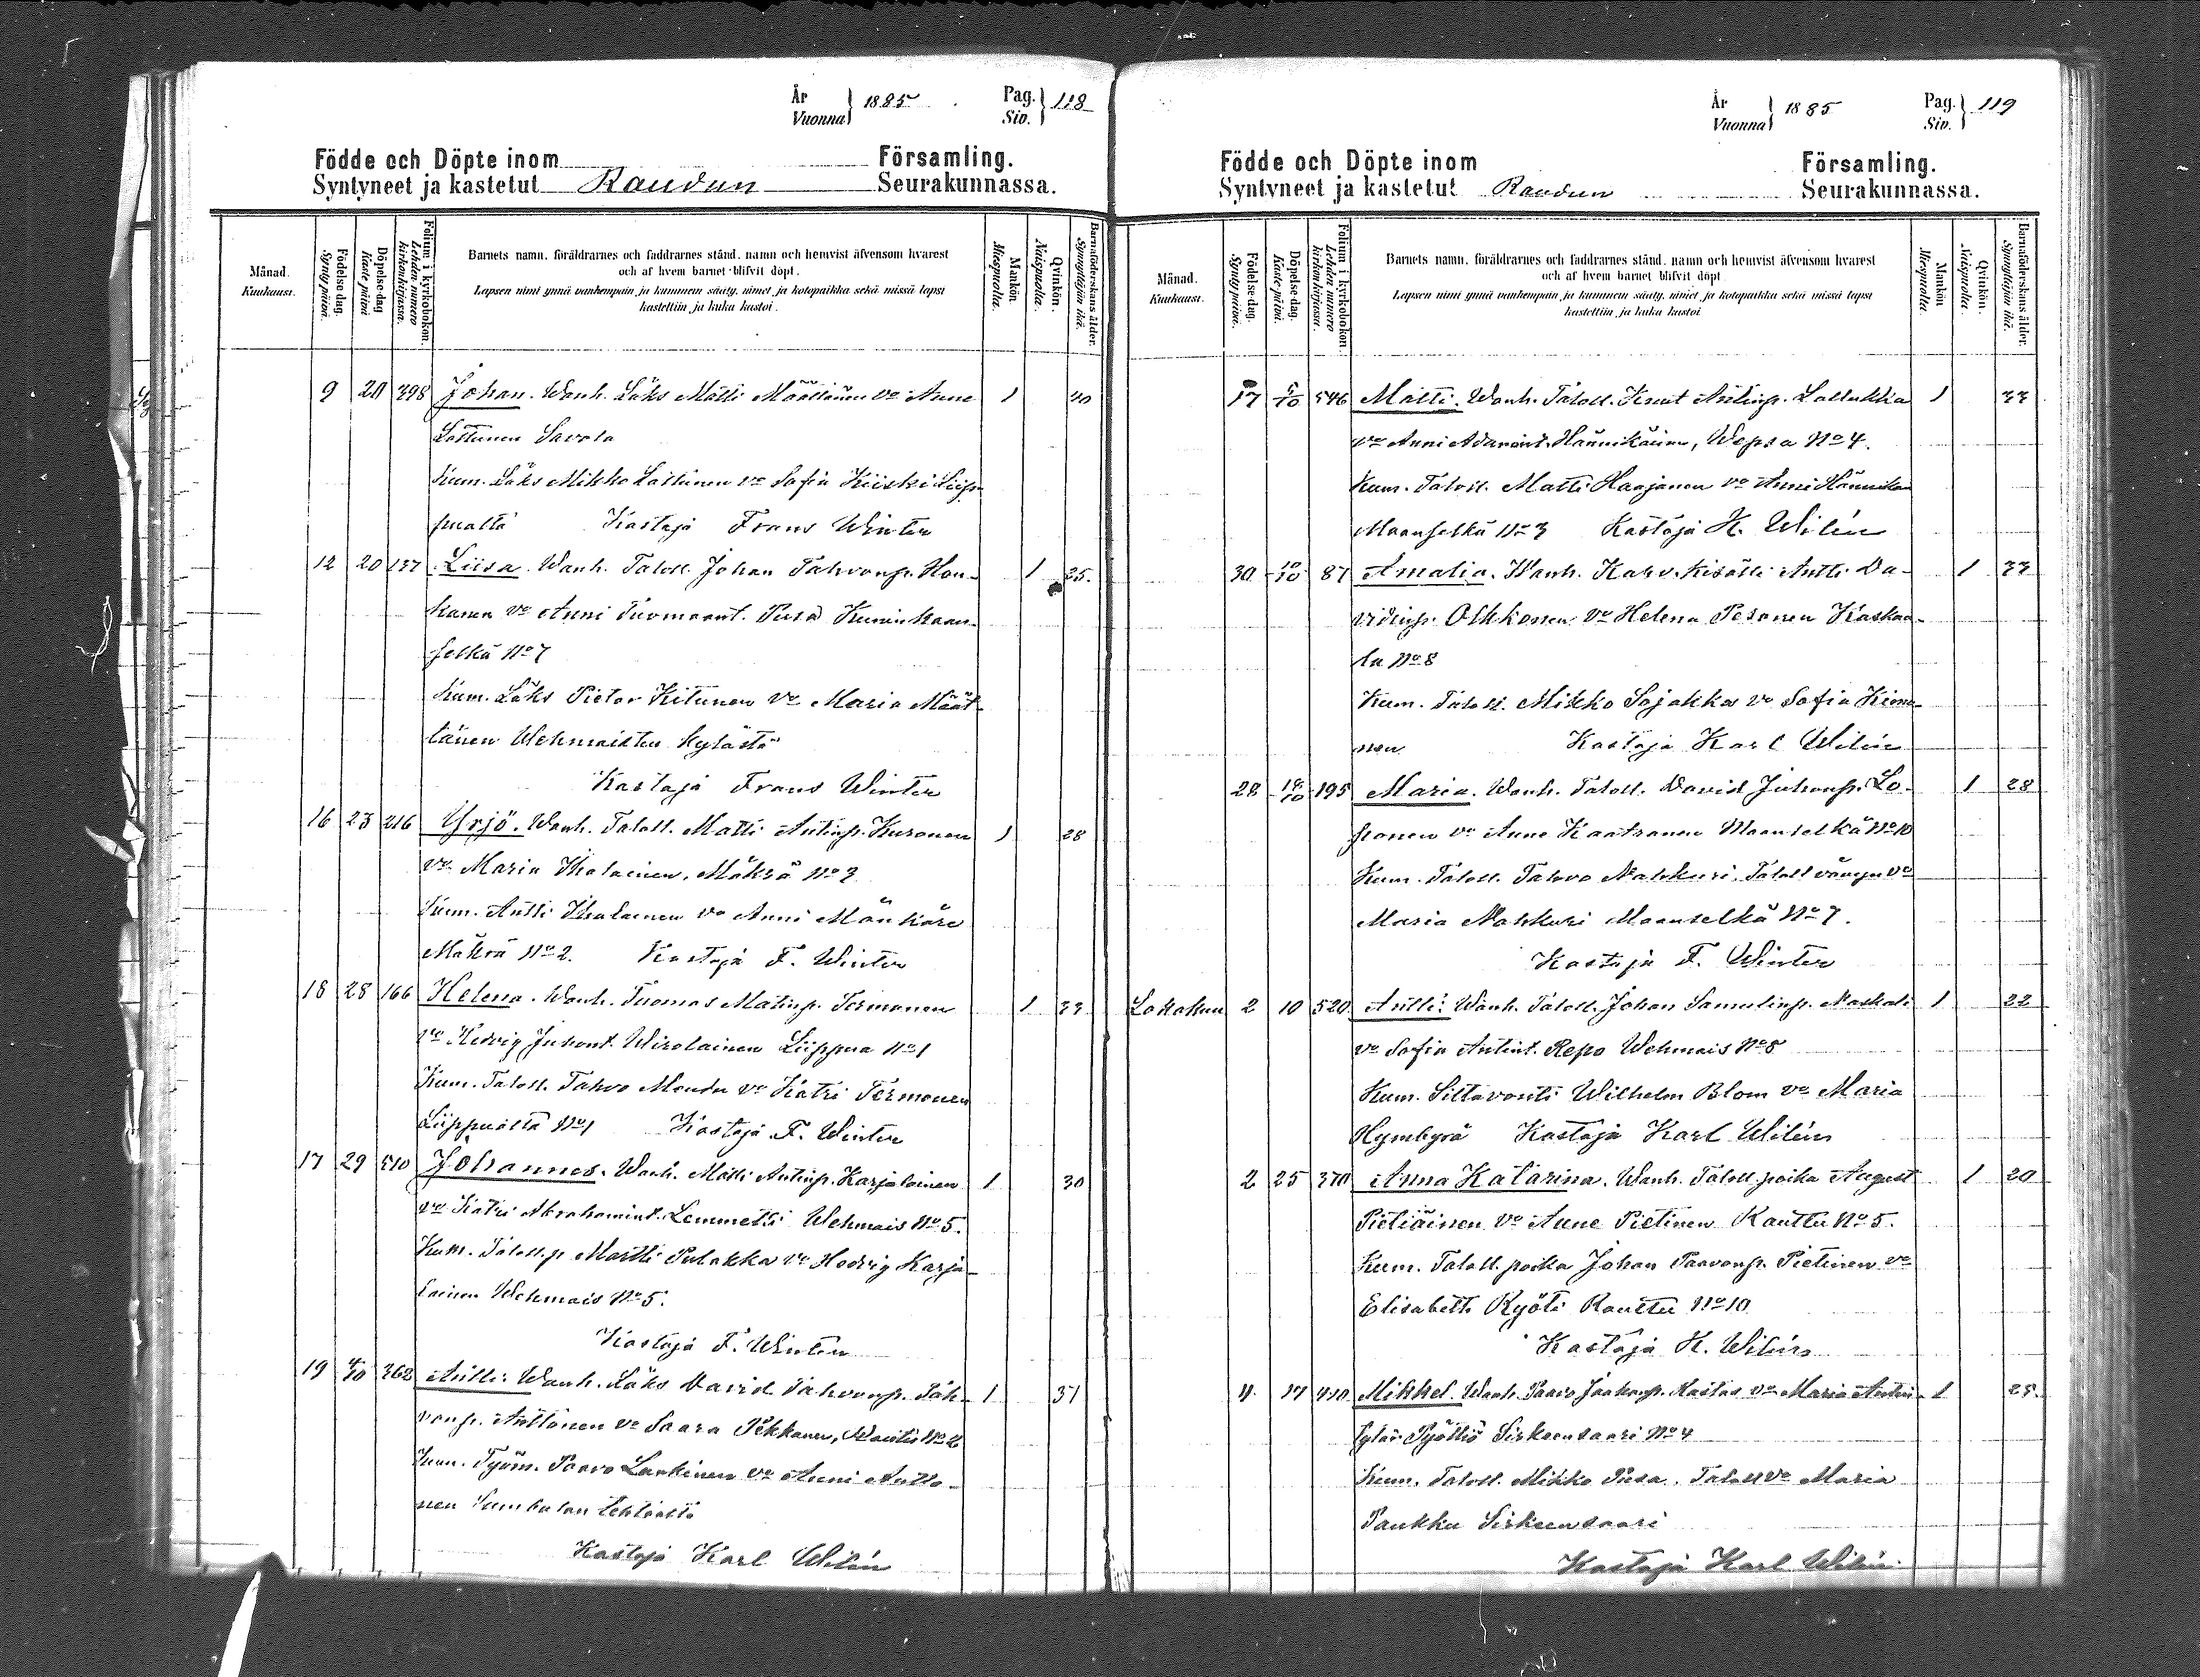 År
Vuonna } 1885. Pag.
Siv. } 118
Födde och Döpte inom Församling.
Syntyneet ja kastetut Raudun Seurakunnassa.
Månad.
Kuukausi.
Födelse-dag.
Syntypäivä.
Döpelse-dag
Kaste päivä
Folium i kyrkobokon.
Lehden numero kirkonkirjassa.
Barnets namn, föräldrarnes och faddrarnes stånd, namn och hemvist äfvensom hvarest
och af hvem barnet blifvit döpt.
Lapsen nimi ynnä vanhempain ja kummein sääty, nimet ja kotopaikka sekä missä lapsi
kastettiin ja kuka kastoi.
Mankön.
Miespuolta.
Qvinkön.
Naispuolta.
Barnaföderskans ålder.
Synnyttäjän ikä.
9 20 398 Johan. Wanh. Läks Matti Määttänen va Anne 1 40
Lattunen Savola
Kum. Läks Mikko Lattunen va Sofia Kiiski Liip
pualta Kastaja Frans Winter
12 20 137 Liisa. Wanh. Taloll. Johan Tahvonp. Hon- 1 25.
kanen va Anni Tuomaant. Pusa Kuninkaan-
selkä No 7
Kum. Läks Pietor Kitunen va Maria Määt-
tänen Wehmaisten kylästä
Kastaja Frans Winter
16 23 216 Yrjö. Wanh. Taloll. Matti Antinp. Kuronen 1 28
va Maria Ihalainen. Mäkrä No 3
Kum. Antti Ihalainen va Anni Mänkäre
Mäkrä No 2. Kastaja F. Winter
18 28 166 Helena. Wanh. Tuomas Matinp. Termonen 1 33
va Hedvig Juhont. Wirolainen Liippua No 1
Kum. Taloll. Tahvo Mondu va Katri Termonen
Liippualta No 1 Kastaja F. Winter
17 29 510 Johannes. Wanh. Matti Antinp. Karjalainen 1 30
va Katri Abrahamint. Lemmetti Wehmais No 5.
Kum. Taloll. p Martti Pulakka va Hedvig Karja-
lainen Wehmais No 5.
Kastaja F. Winter
19 4/10 362 Antti: Wanh. Läks David Tahvonp. Tah- 1 31
vonp. Anttonen va Saara Pekkanen,
Kum. Työm. Paavo Lankinen va Anni Antto-
nen Sumbulan tehtaalta
Kastaja Karl Wilén
År
Vuonna } 1885 Pag.
Siv. } 119
Födde och Döpte inom Församling.
Syntyneet ja kastetut Raudun Seurakunnassa.
Månad.
Kuukausi.
Födelse-dag.
Syntypäivä.
Döpelse-dag.
Kaste päivä.
Folium i kyrkobokon.
Lehden numero kirkonkirjassa.
Barnets namn, föräldrarnes och faddrarnes stånd, namn och hemvist äfvensom hvarest
och af hvem barnet blifvit döpt
Lapsen nimi ynnä vanhempain ja kummein sääty, nimet ja kotopaikka sekä missä lapsi
kastettiin ja kuka kastoi
Mankön
Miespuolta.
Qvinkön.
Naispuolta.
Barnaföderskans ålder.
Synnyttäjän ikä.
17 5/10 546 Matti. Wanh. Taloll. Knut Antinp. Lallukka 1 33
va Anni Adamint. Hännikäinen, Wepsa No 4.
Kum. Taloll. Matti Haajanen va Anni Hännikäi
Maanselkä No 3 Kastaja K. Wilén
30 10/10 87 Amalia. Wanh. Kahv. kisälli Antti Da- 1 33
vidinp. Olkkonen va Helena Pesonen Kaskaa-
la No 8
Kum. Taloll. Mikko Sojakka va Sofia Kiona-
nen Kastaja Karl Wilén
28 18/10 195 Maria. Wanh. Taloll. David Juhonp. Lo- 1 28
ponen va Anna Kaatranen Maanselkä No 10
Kum. Taloll. Tahvo Nahkuri, Taloll vävyn va
Maria Nahkuri Maanselkä No 7.
Kastaja F. Winter
Lokakuu 2 10 520 Antti: Wanh. Taloll. Johan Samulinp. Maskali 1 22
va Sofia Antint. Repo Wehmais No 8
Kum. Siltavouti Wilhelm Blom va Maria
Hymbyrä Kastaja Karl Wilén
2 25 370 Anna Katarina. Wanh. Taloll. poika August 1 20
Pietiäinen va Anne Pietinen Rautu No 5.
Kum. Taloll. poika Johan Paavonp. Pietinen va
Elisabeth Ryöti Rautu No 10
Kastaja K. Wilén
4 17 410 Mikkel. Wanh. Paavo Jaakonp. Kastas va Maria Antin 1 25.
tytär Pyöttiö Sirkeensaari No 4
Kum. Taloll. Mikko Pusa. Taloll va Maria
Paukku Sirkeensaari
Kastaja Karl Wilén.